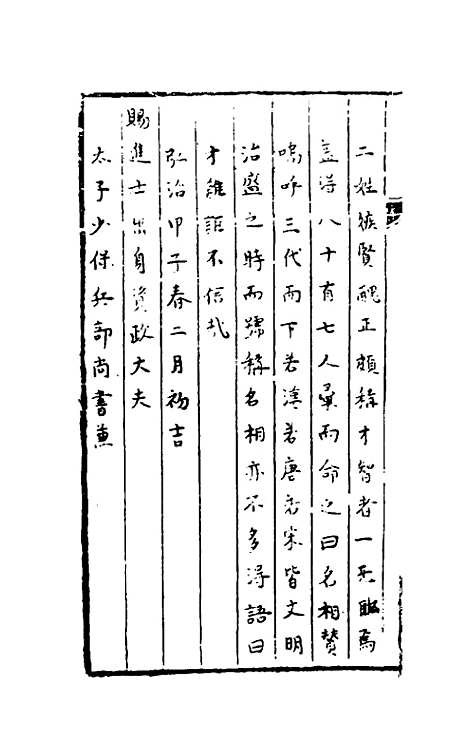 二姓嫉賢醜正頗稱才智者一無
蓋得八十有七人彙而命之曰名相贊
嗚呼三代而下若漢若唐若宋皆文明
治盛之時而號稱名相亦不多得語曰
才難詎不信哉
弘治甲子春二月初吉
賜進士出身資政大夫
太子少保兵部尚書兼